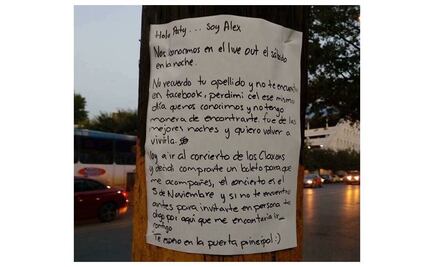 Hola Paty... Soy Alex
Nos conocimos en el live out el sábado
en la noche.
No recuerdo tu apellido y no te encuentro
en facebook, perdi mi cel ese mismo
día que nos conocimos y no tengo
manera de encontrarte. fue de las
mejores noches y quiero volver a
vivirla.
Voy a ir al concierto de los Claxons
y decidí comprarte un boleto para que
me acompañes, el concierto es el
5 de Noviembre y si no te encuentro
antes para invitarte en persona te
digo por aqui que me encantaria ir
contigo
Te espero en la puerta principal :)